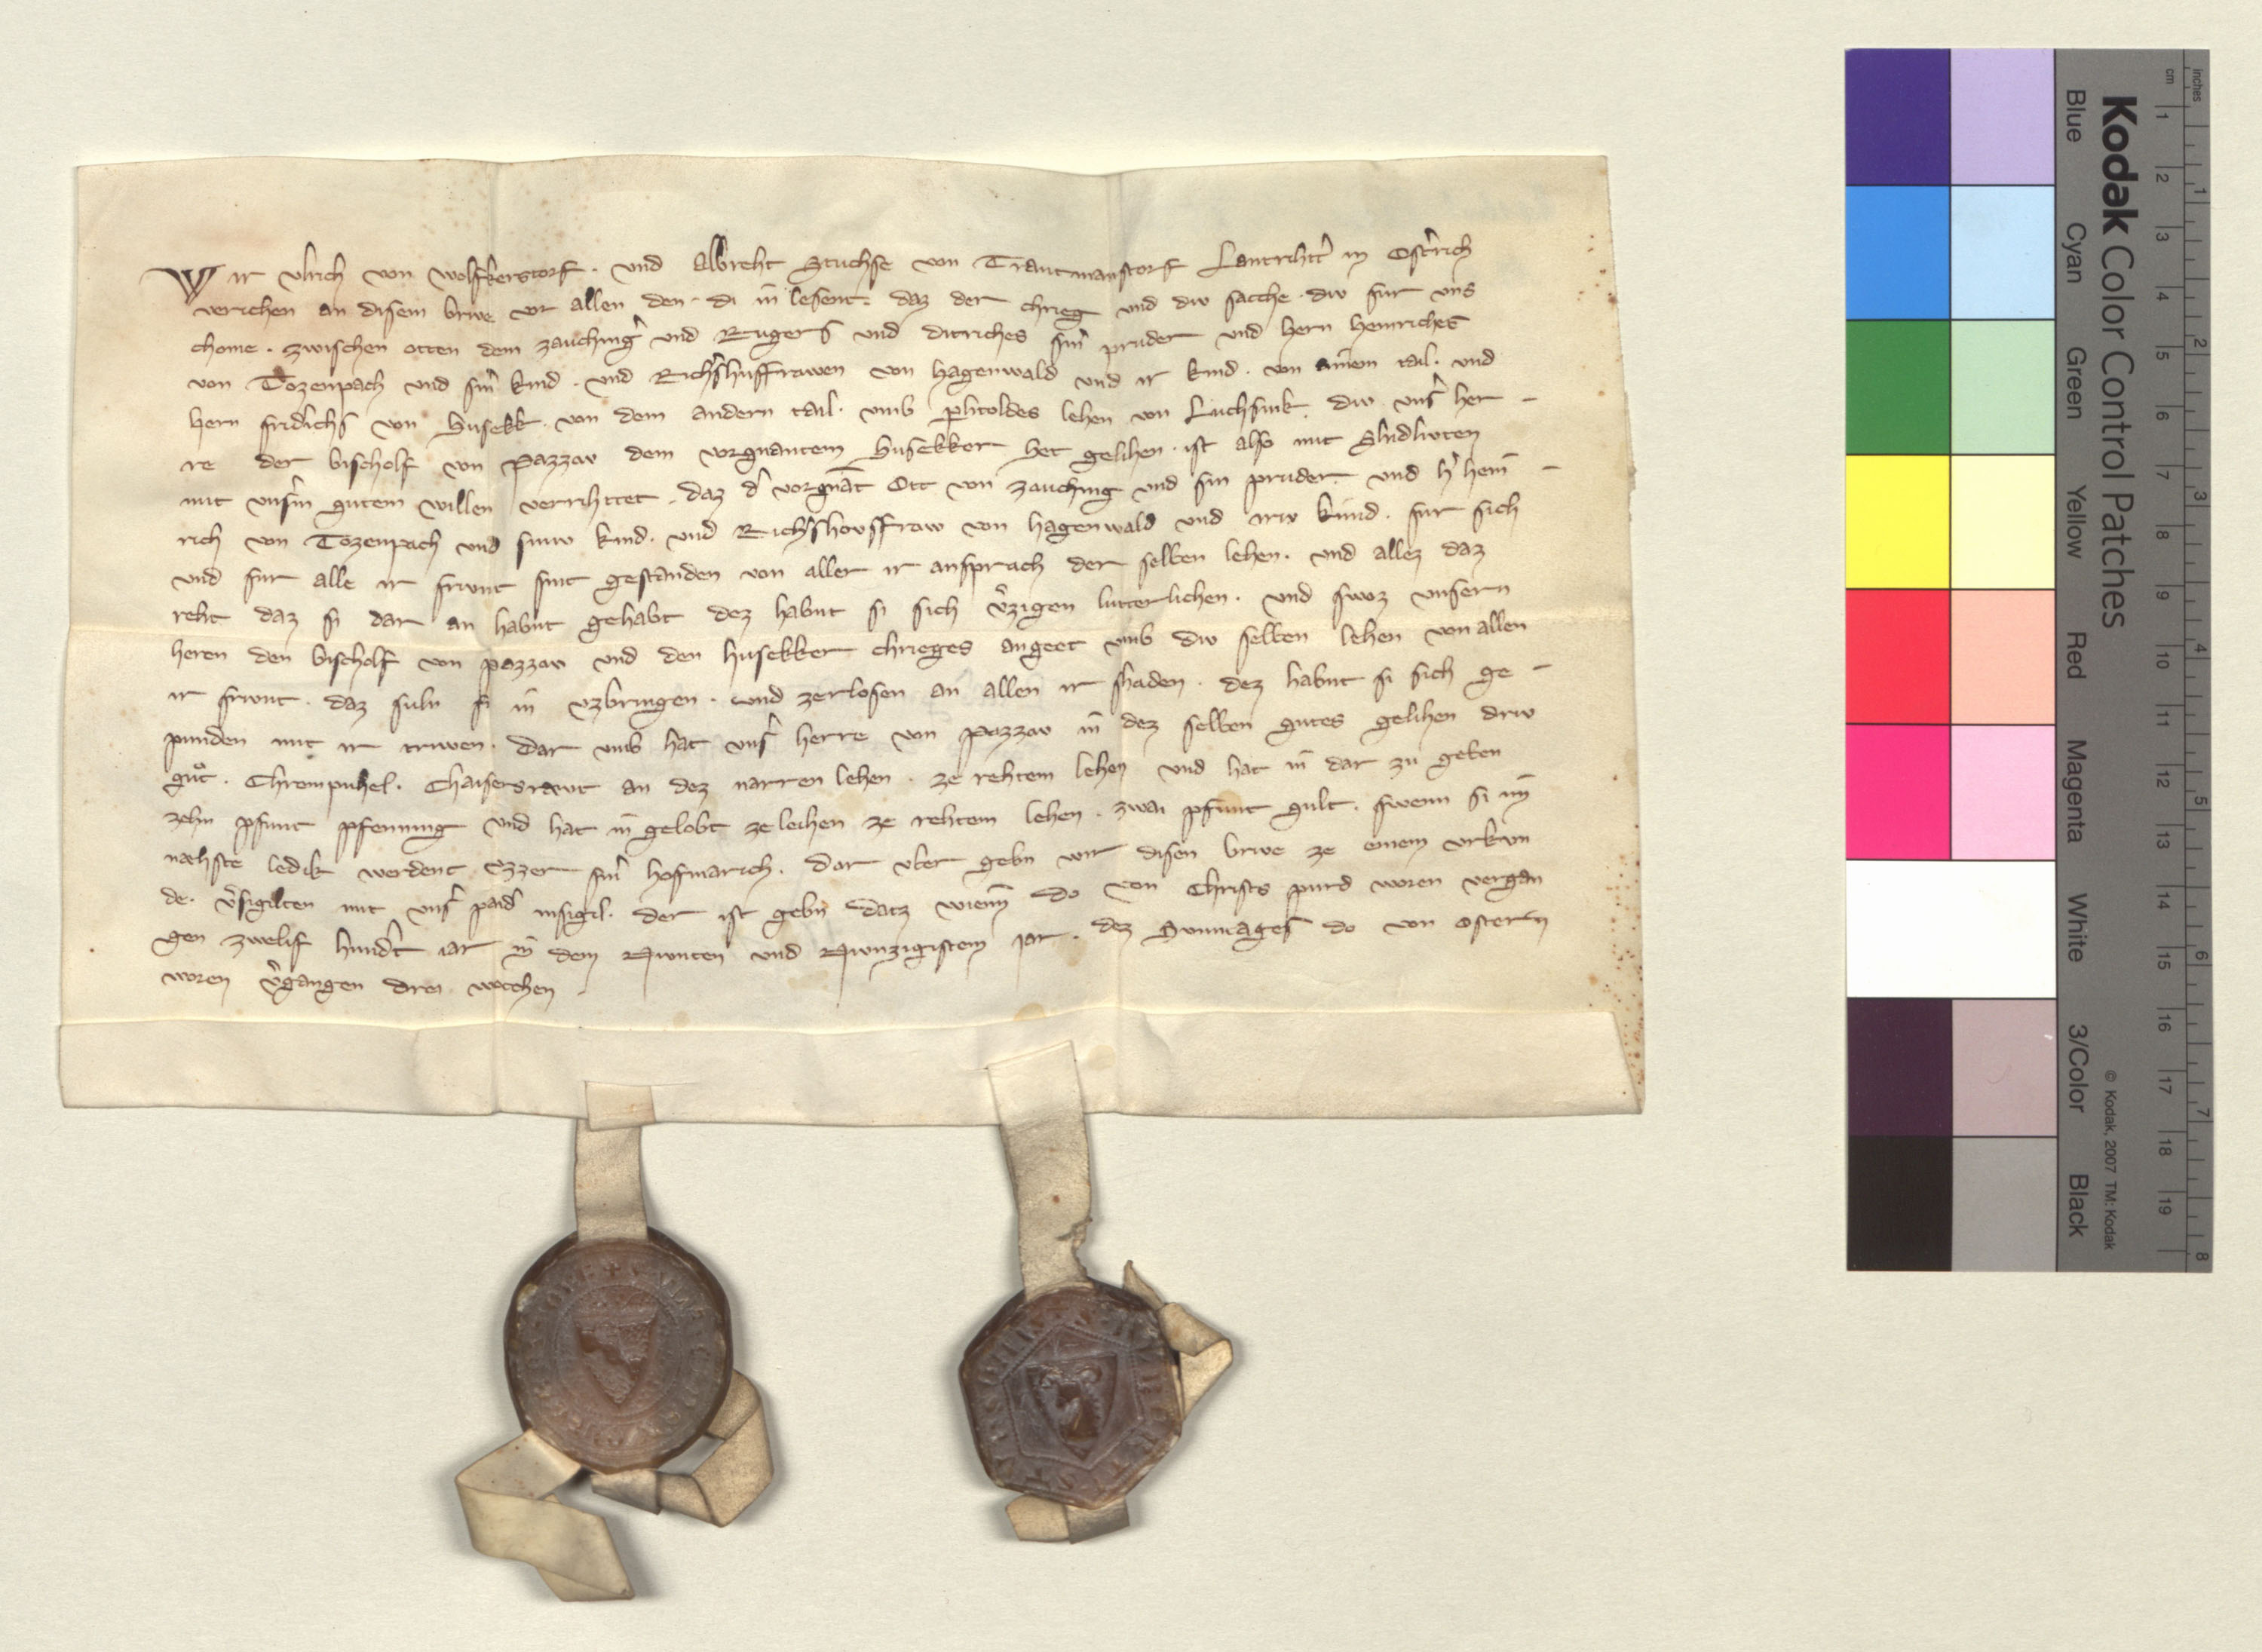 Wir Vlrich von Wolfkerstorf · vnd Albreht Stuchse von Trautmanstorf Lantrihtˀ in Ostˀrich
verichen an disem brive vor allen den · di in lesent · daz der chrieg vnd div sache · div fur vns
chome · zwischen Otten dem Zauchingˀ vnd Rugers vnd Ditriches sinˀ pruder vnd hern Heinriches
von Tozenpach vnd sinˀ kind · vnd Richˀshusfrawen von Hagenwald vnd ir kind · von ainem tail · vnd
hern Fridichs von Husekk · von dem andern tail · vmb phtoldes lehen von Luchsnik · div vnsˀ her-
re der bischolf von Pazzov dem vorgnantem Husekker het gelihen · ist also mit Shidlivten
mit vnsˀm gutem willen verrihttet · daz dˀ vorgnāt Ott von Zauching vnd sin pruder · vnd hˀ Hein-
rich von Tozenpach vnd siniv kind · vnd Richˀshovsfraw von Hagenwald vnd iriv kind · fur sich
vnd fur alle ir frivnt sint gestanden von aller ir ansprach der selben lehen · vnd allez daz
reht daz si dar an habnt gehabt dez habnt si sich vˀzigen lutterlichen · vnd swoz vnsern
heren den bischolf von Pazzov vnd den Husekker chrieges anget vmb div selben lehen von allen
ir frivnt · daz suln si in vzbringen · vnd zerlosen an allen ir shaden · dez habnt si sich ge-
punden mit ir triwen · Dar vmb hat vnsˀ herre von Pazzov in dez selben gutes gelihen driv
guͦt · Chrempuhel · Chaisersravt an dez narren lehen · ze rehtem lehen vnd hat in dar zu geben
zehn pfunt pfenning vnd hat in gelobt ze leihen ze rehtem lehen · zwai pfunt gult · swenn si im
næhste ledik werdent vzzer sinˀ hofmarich · Dar vber gebn wir disen brive ze einem vrkvn
de · vˀsigilten mit vnsˀ paidˀ insigil · der ist gebn datz Wienn do von Christs purd woren vergan
gen zwelif hundˀt iar in dem Nivnten vnd Nivnzigistem iar · dez Svnntages do von Ostern
woren vˀgangen drei wochen ·
Kodak Color Control Patches
Blue Cyan Green Yellow Red Magenta White 3/Color Black
© Kodak, 2007 TM: Kodak
inches 1 2 3 4 5 6 7 8
cm 1 2 3 4 5 6 7 8 9 10 11 12 13 14 15 16 17 18 19